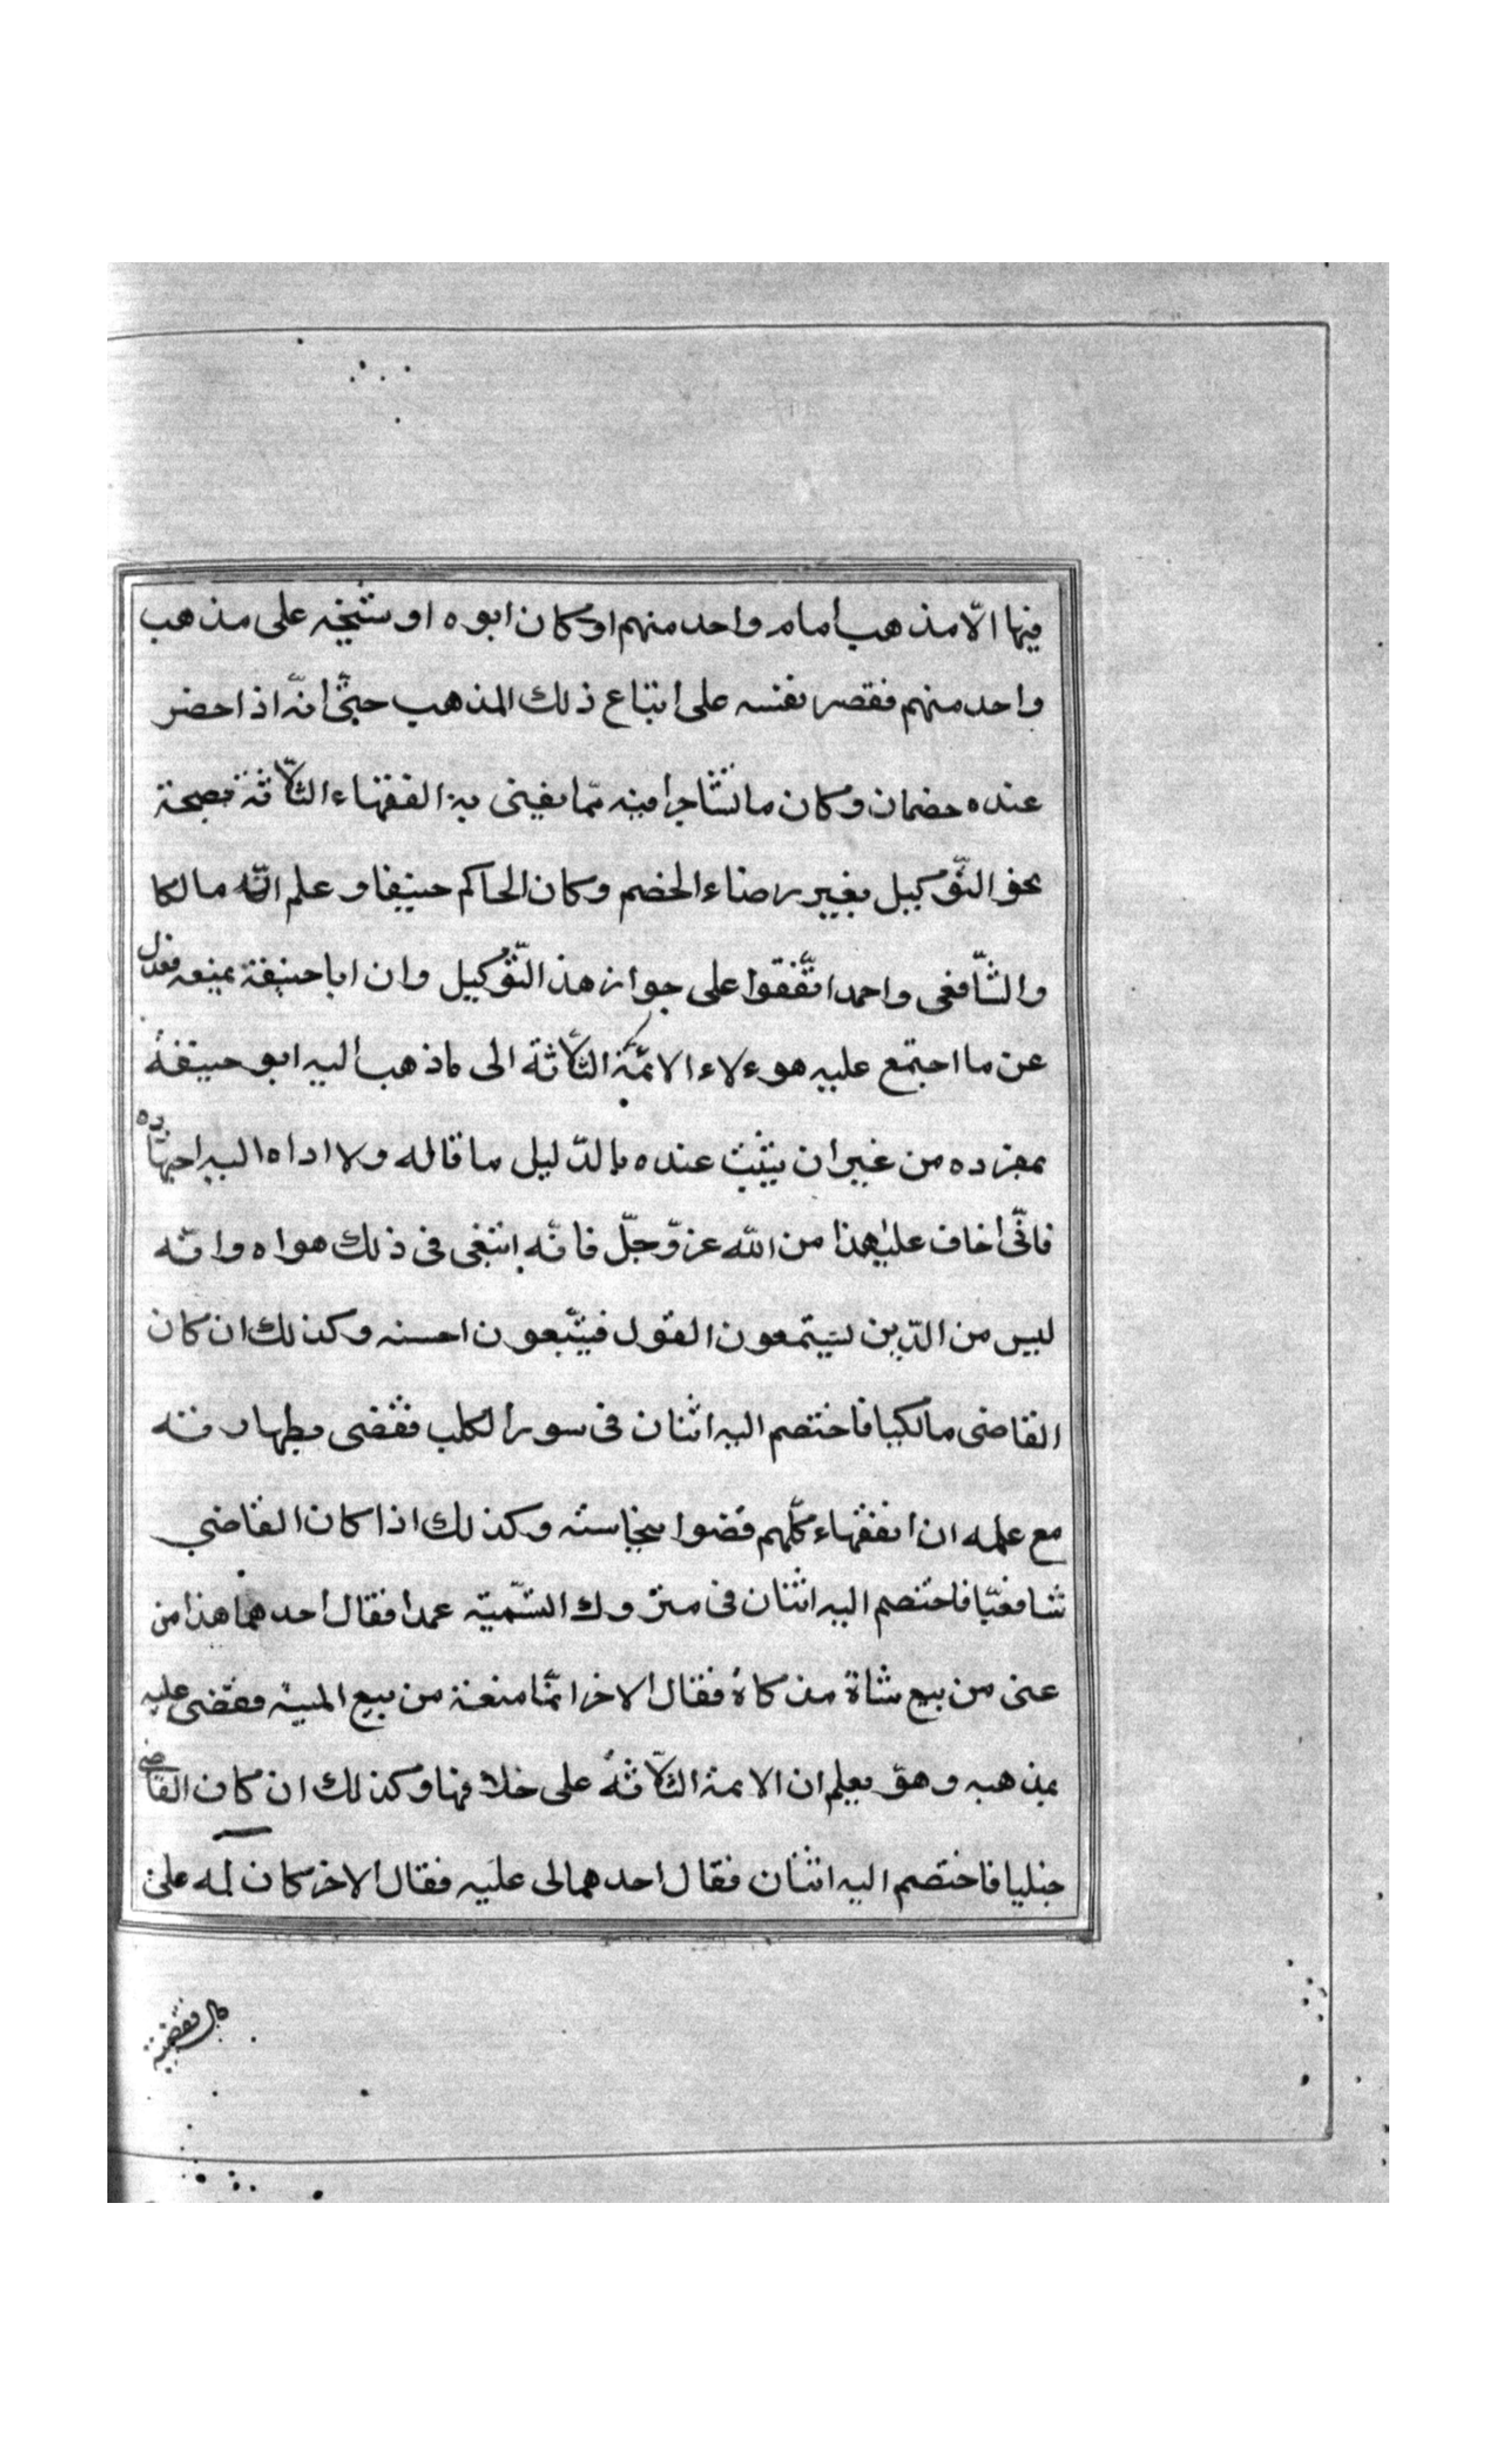 فيها الّا مذهب امامه واحد منهم او كان ابوه او شيخه على مذهب
واحد منهم فقصر نفسه على اتباع ذلك المذهب حتّى انّه اذا حضر
عنده خصمان وكان ما تشاجرا فيه ممّا يفتى به الفقهاء الثلاثة بصحة
نحو التّوكيل بغير رضاء الخصم وكان الحاكم حنيفا و علم انّه مالكا
والشّافعى واحمد اتّفقوا على جواز هذ التّوكيل وان ابا حنيفة يمنعه فعدل
عن ما اجتمع عليه هوءلاء الائمّة الثلاثة الى ما ذهب اليه ابو حنيفة
بمفرده من غير ان يثبت عنده بالدّليل ما قاله ولا اداه اليه اجتهاده
فانّى اخاف على هذا من اللّه عزّوجلّ فانّه اتبغى فى ذلك هواه وانّه
ليس من الذّين ليستمعون القول فيتّبعون احسنه وكذلك ان كان
القاضى مالكيا فاختصم اليه اثنان فى سور الكلب فقضى بطهارته
مع علمه ان الفقهاء كلّهم قضوا بنجاسته وكذلك اذا كان القاضي
شافعيّا فاختصم اليه اثنان فى متروك التسّمية عمدا فقال احدهما هذا من
عنى من بيع شاة مذكاة فقال الاخر انمّا منعته من بيع الميتة فقضى عليه
بمذهبه وهو يعلم ان الائمة الثلاثة على خلافها وكذلك ان كان القاضى
حنبليا فاختصم اليه اثنان فقال احدهما لى عليه فقال الاخر كان له علىّ
مال فقضيته